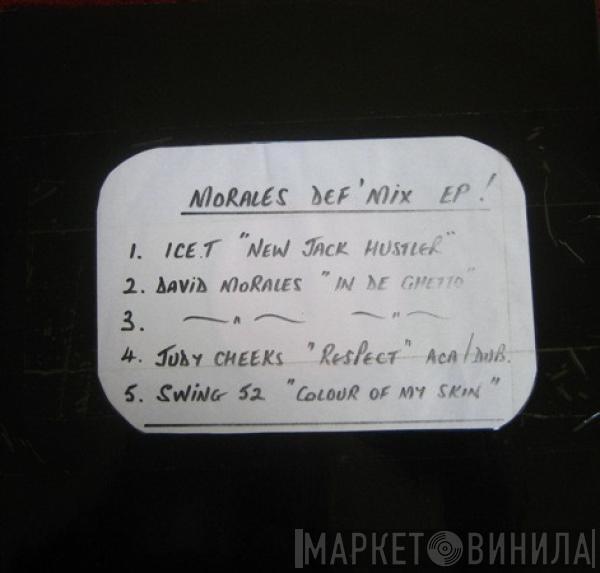 MORALES DEF'MIX EP!
1. ICE.T "NEW JACK HUSTLER"
2. DAVID MORALES "IN DE GHETTO"
3. 〃 〃
4. JUDY CHEEKS "RESPECT" ACA/DUB.
5. SWING 52 "COLOUR OF MY SKIN"
МАРКЕТ ВИНИЛА